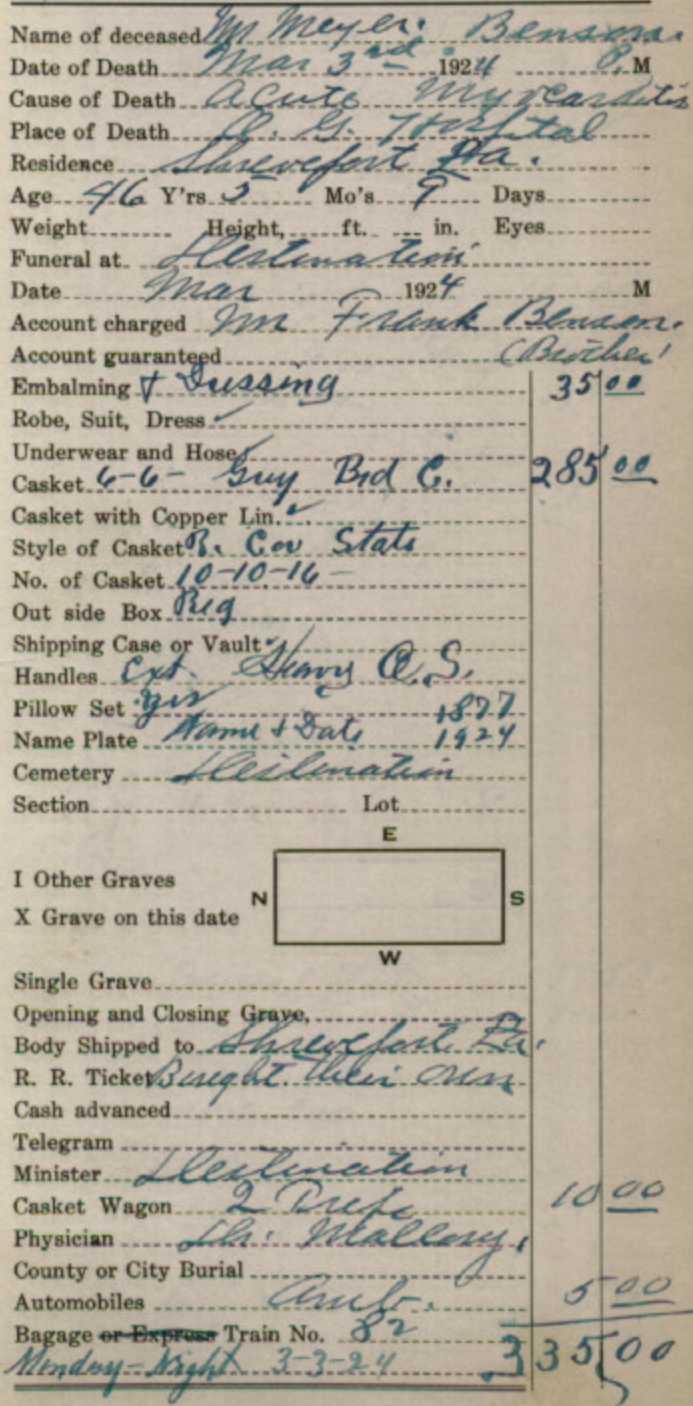 Name of deceased Mr Meyer. Benson.
Date of Death Mar 3rd 1924 P. M
Cause of Death Acute Myocarditis
Place of Death H. G. Hospital
Residence Shreveport La.
Age 46 Y'rs 5 Mo's 9 Days
Weight Height, ft. in. Eyes
Funeral at Destination
Date Mar 1924 M
Account charged Mr Frank Benson.
Account guaranteed (Brother)
Embalming & Dressing 35 00
Robe, Suit, Dress ✓
Underwear and Hose ✓
Casket 6-6- Gray Brd C. 285 00
Casket with Copper Lin. ✓
Style of Casket Cov State
No. of Casket 10-10-16-
Out side Box Reg
Shipping Case or Vault ✓
Handles Ext. Heavy O.S.
Pillow Set yes 1877
Name Plate Name & Date 1924
Cemetery Destination
Section Lot
E
I Other Graves
N S
X Grave on this date
W
Single Grave
Opening and Closing Grave,
Body Shipped to Shreveport La.
R. R. Ticket Bought their own
Cash advanced
Telegram
Minister Destination
Casket Wagon 2 Trips 10 00
Physician Dr. Mallory.
County or City Burial
Automobiles Amb. 5 00
Bagage or Express Train No. 82
Monday-Night 3-3-24 335 00